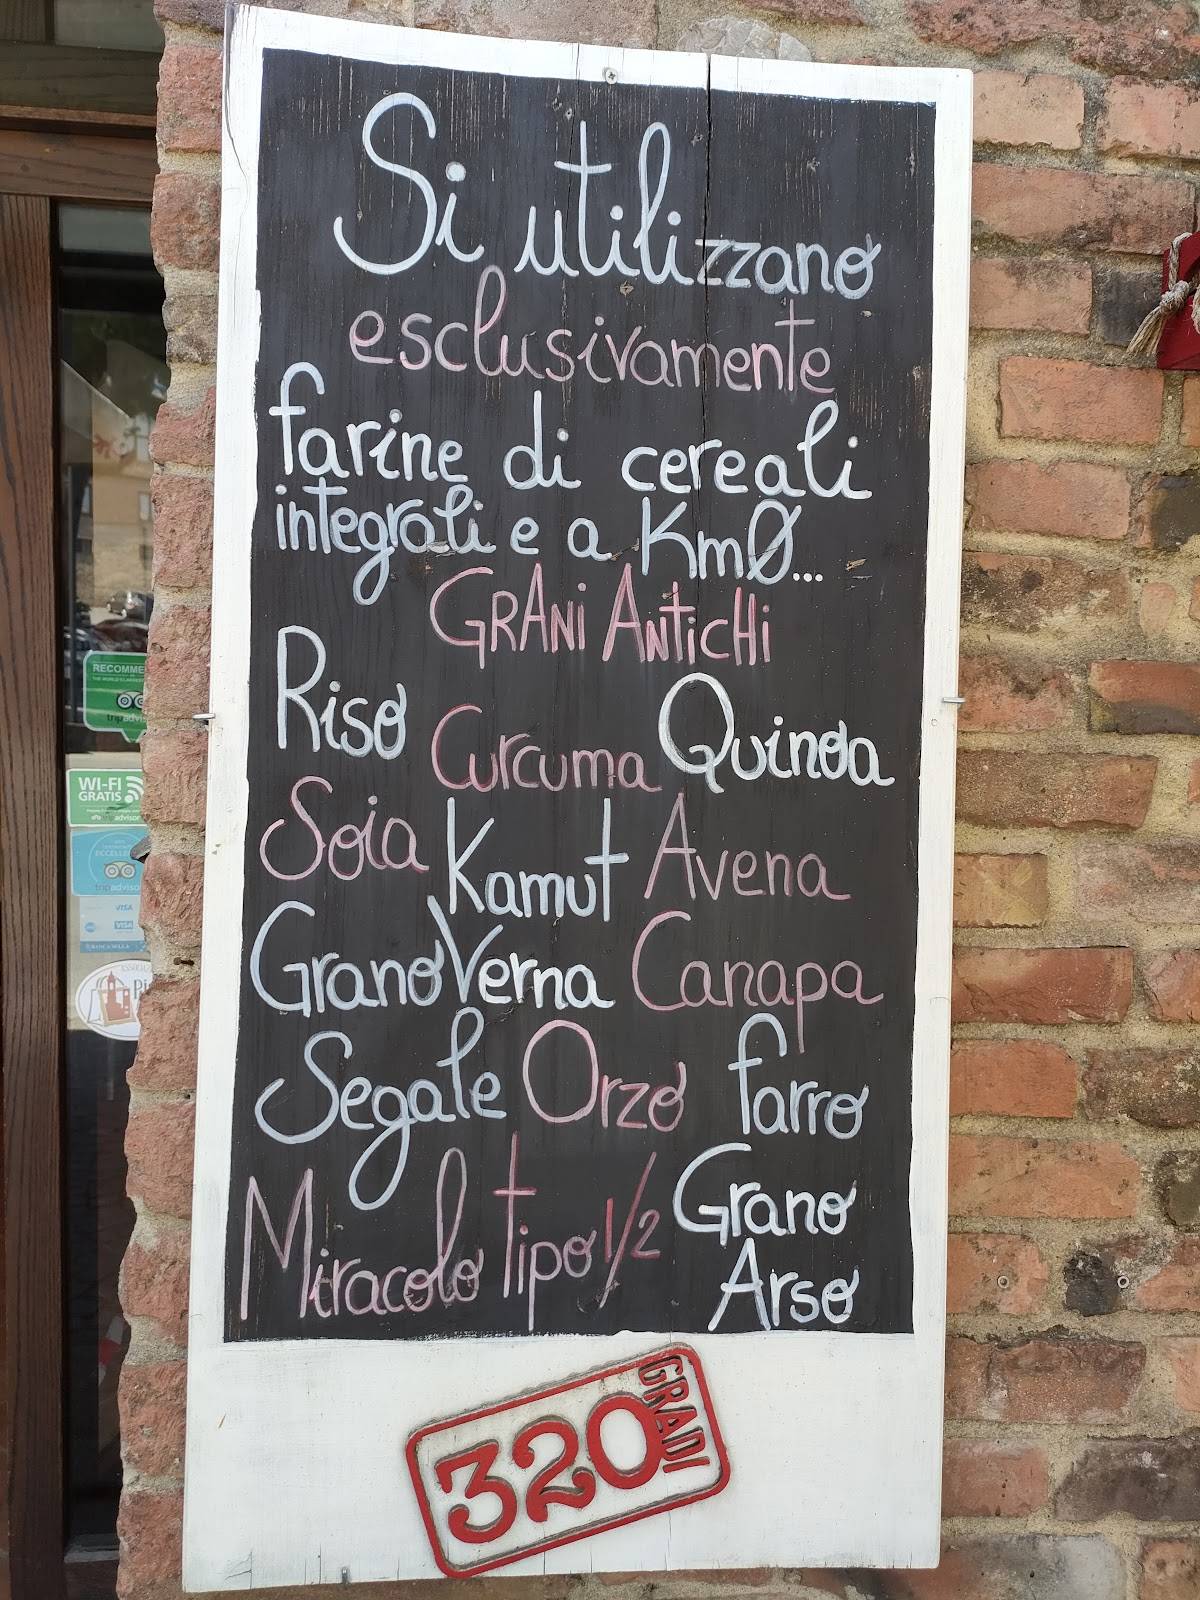 Si utilizzano
esclusivamente
farine di cereali
integrali e a Km0...
GRANi ANTiCHi
Riso Curcuma Quinoa
Soia Kamut Avena
Grano Verna Canapa
Segale Orzo farro
Miracolo tipo 1/2 Grano
Arso
320 GRADI
RECOMME
tripadvis
WI-FI
GRATIS
tripadvisor
ECCELLE
tripadviso
VISA
VISA
BANCA SELLA
Pi